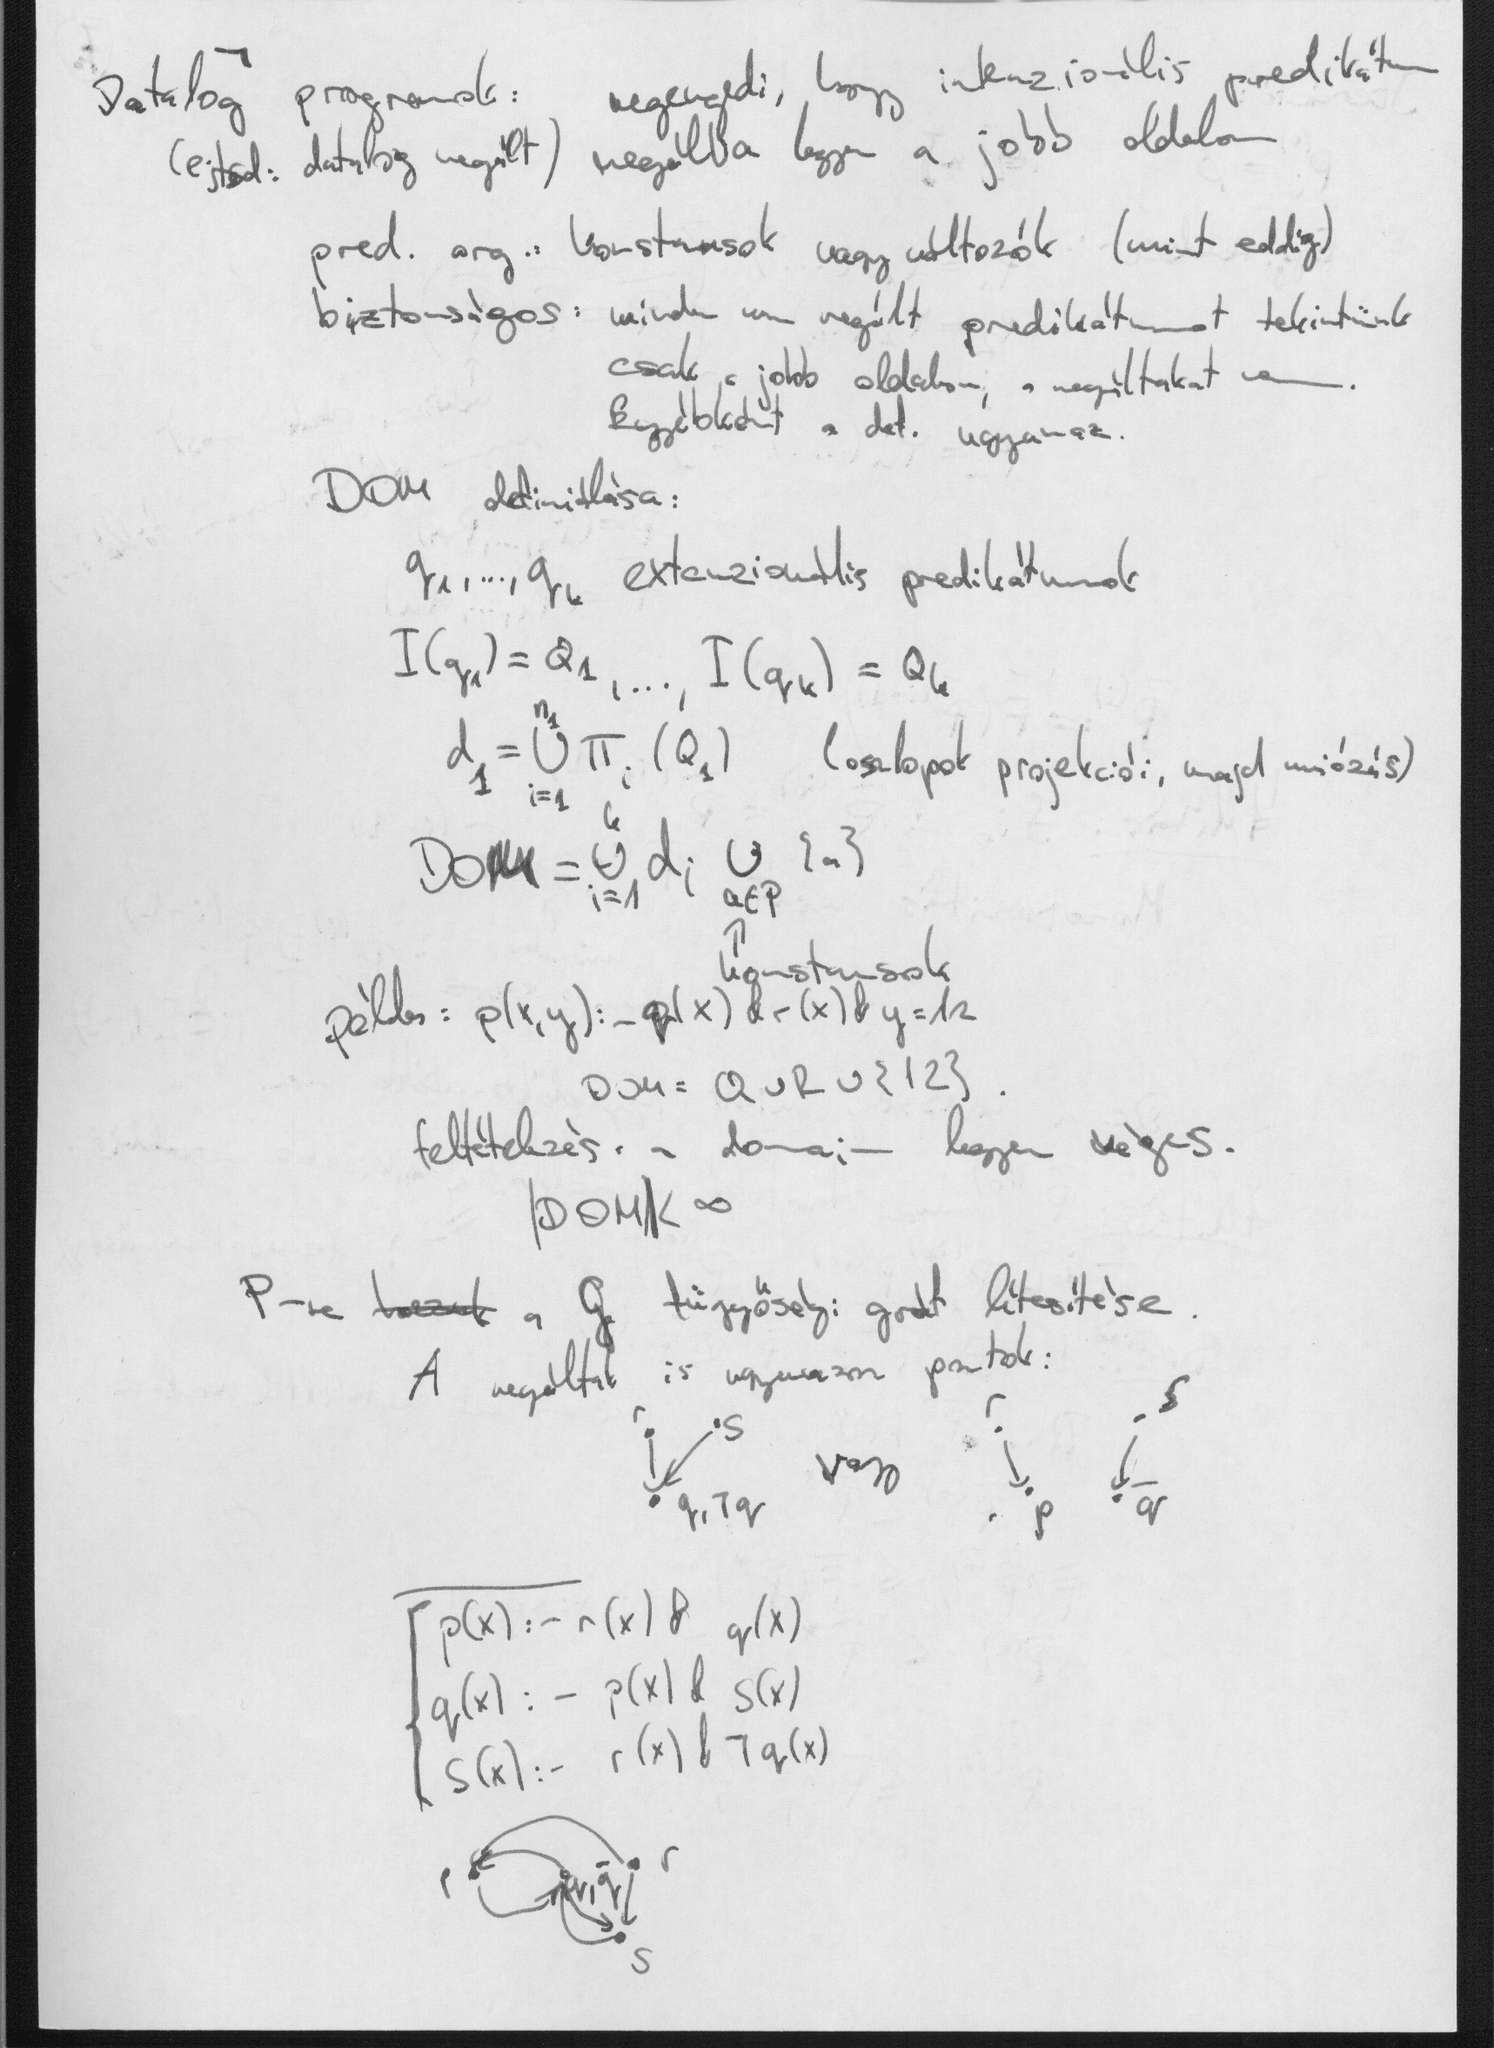 Datalog¬ programok: megengedi, hogy intenzionális predikátum
(ejtsd: datalog negált) negálva legyen a jobb oldalon
pred. arg.: konstansok vagy változók (mint eddig)
biztonságos: minden nem negált predikátumot tekintünk
csak a jobb oldalon, a negáltakat nem.
Egyébként a def. ugyanaz.
DOM definiálása:
q₁, ..., qₖ extenzionális predikátumok
I(q₁) = Q₁, ..., I(qₖ) = Qₖ
d₁ = ∪ᵢ₌₁ⁿ¹ Πᵢ (Q₁) (oszlopok projekciói, majd uniózás)
DOM = ∪ᵢ₌₁ᵏ dᵢ ∪ {a}
a∈P
↑
konstansok
példa: p(x,y):-q(x) & r(x) & y=12
DOM = Q ∪ R ∪ {12}.
feltételezés: a domain legyen véges.
|DOM| < ∞
P-re a G függőségi gráf létesítése.
A negáltak is ugyanazon pontok:
r s vagy r s
q, ¬q p q̄
p(x) :- r(x) & q(x)
q(x) :- p(x) & s(x)
s(x) :- r(x) & ¬q(x)
p q, q̄ r
s